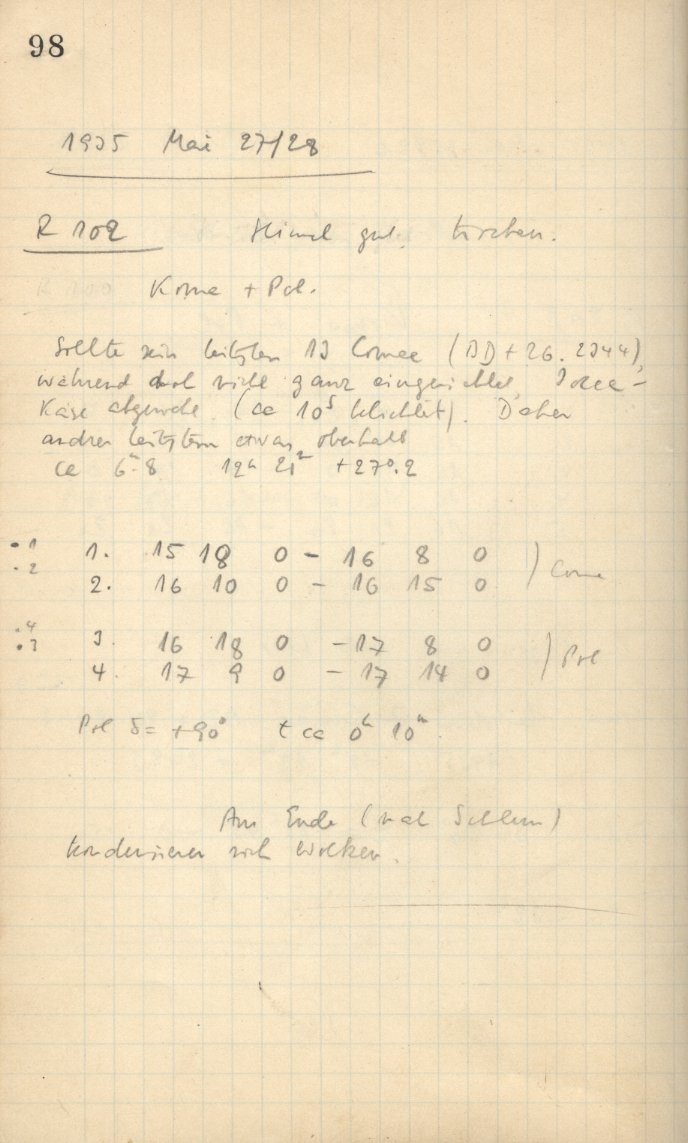 98
1935 Mai 27/28
R 102 Himmel gut, trocken.
Koma + Pol.
Sollte sein Leitstern 13 Comae (BD+26.2344),
während nicht ganz eingerichtet,
(ca 10s belichtet). Daher
andrer Leitstern etwas oberhalb
ca 6m.8 12h 21m +27°.2
.1 1. 15 18 0 - 16 8 0 ) Coma
.2 2. 16 10 0 - 16 15 0
.4 3. 16 18 0 - 17 8 0 ) Pol
.3 4. 17 9 0 - 17 14 0
Pol δ= +90° t ca 0h 10m
Am Ende (nach Schluss)
kondensieren sich Wolken.